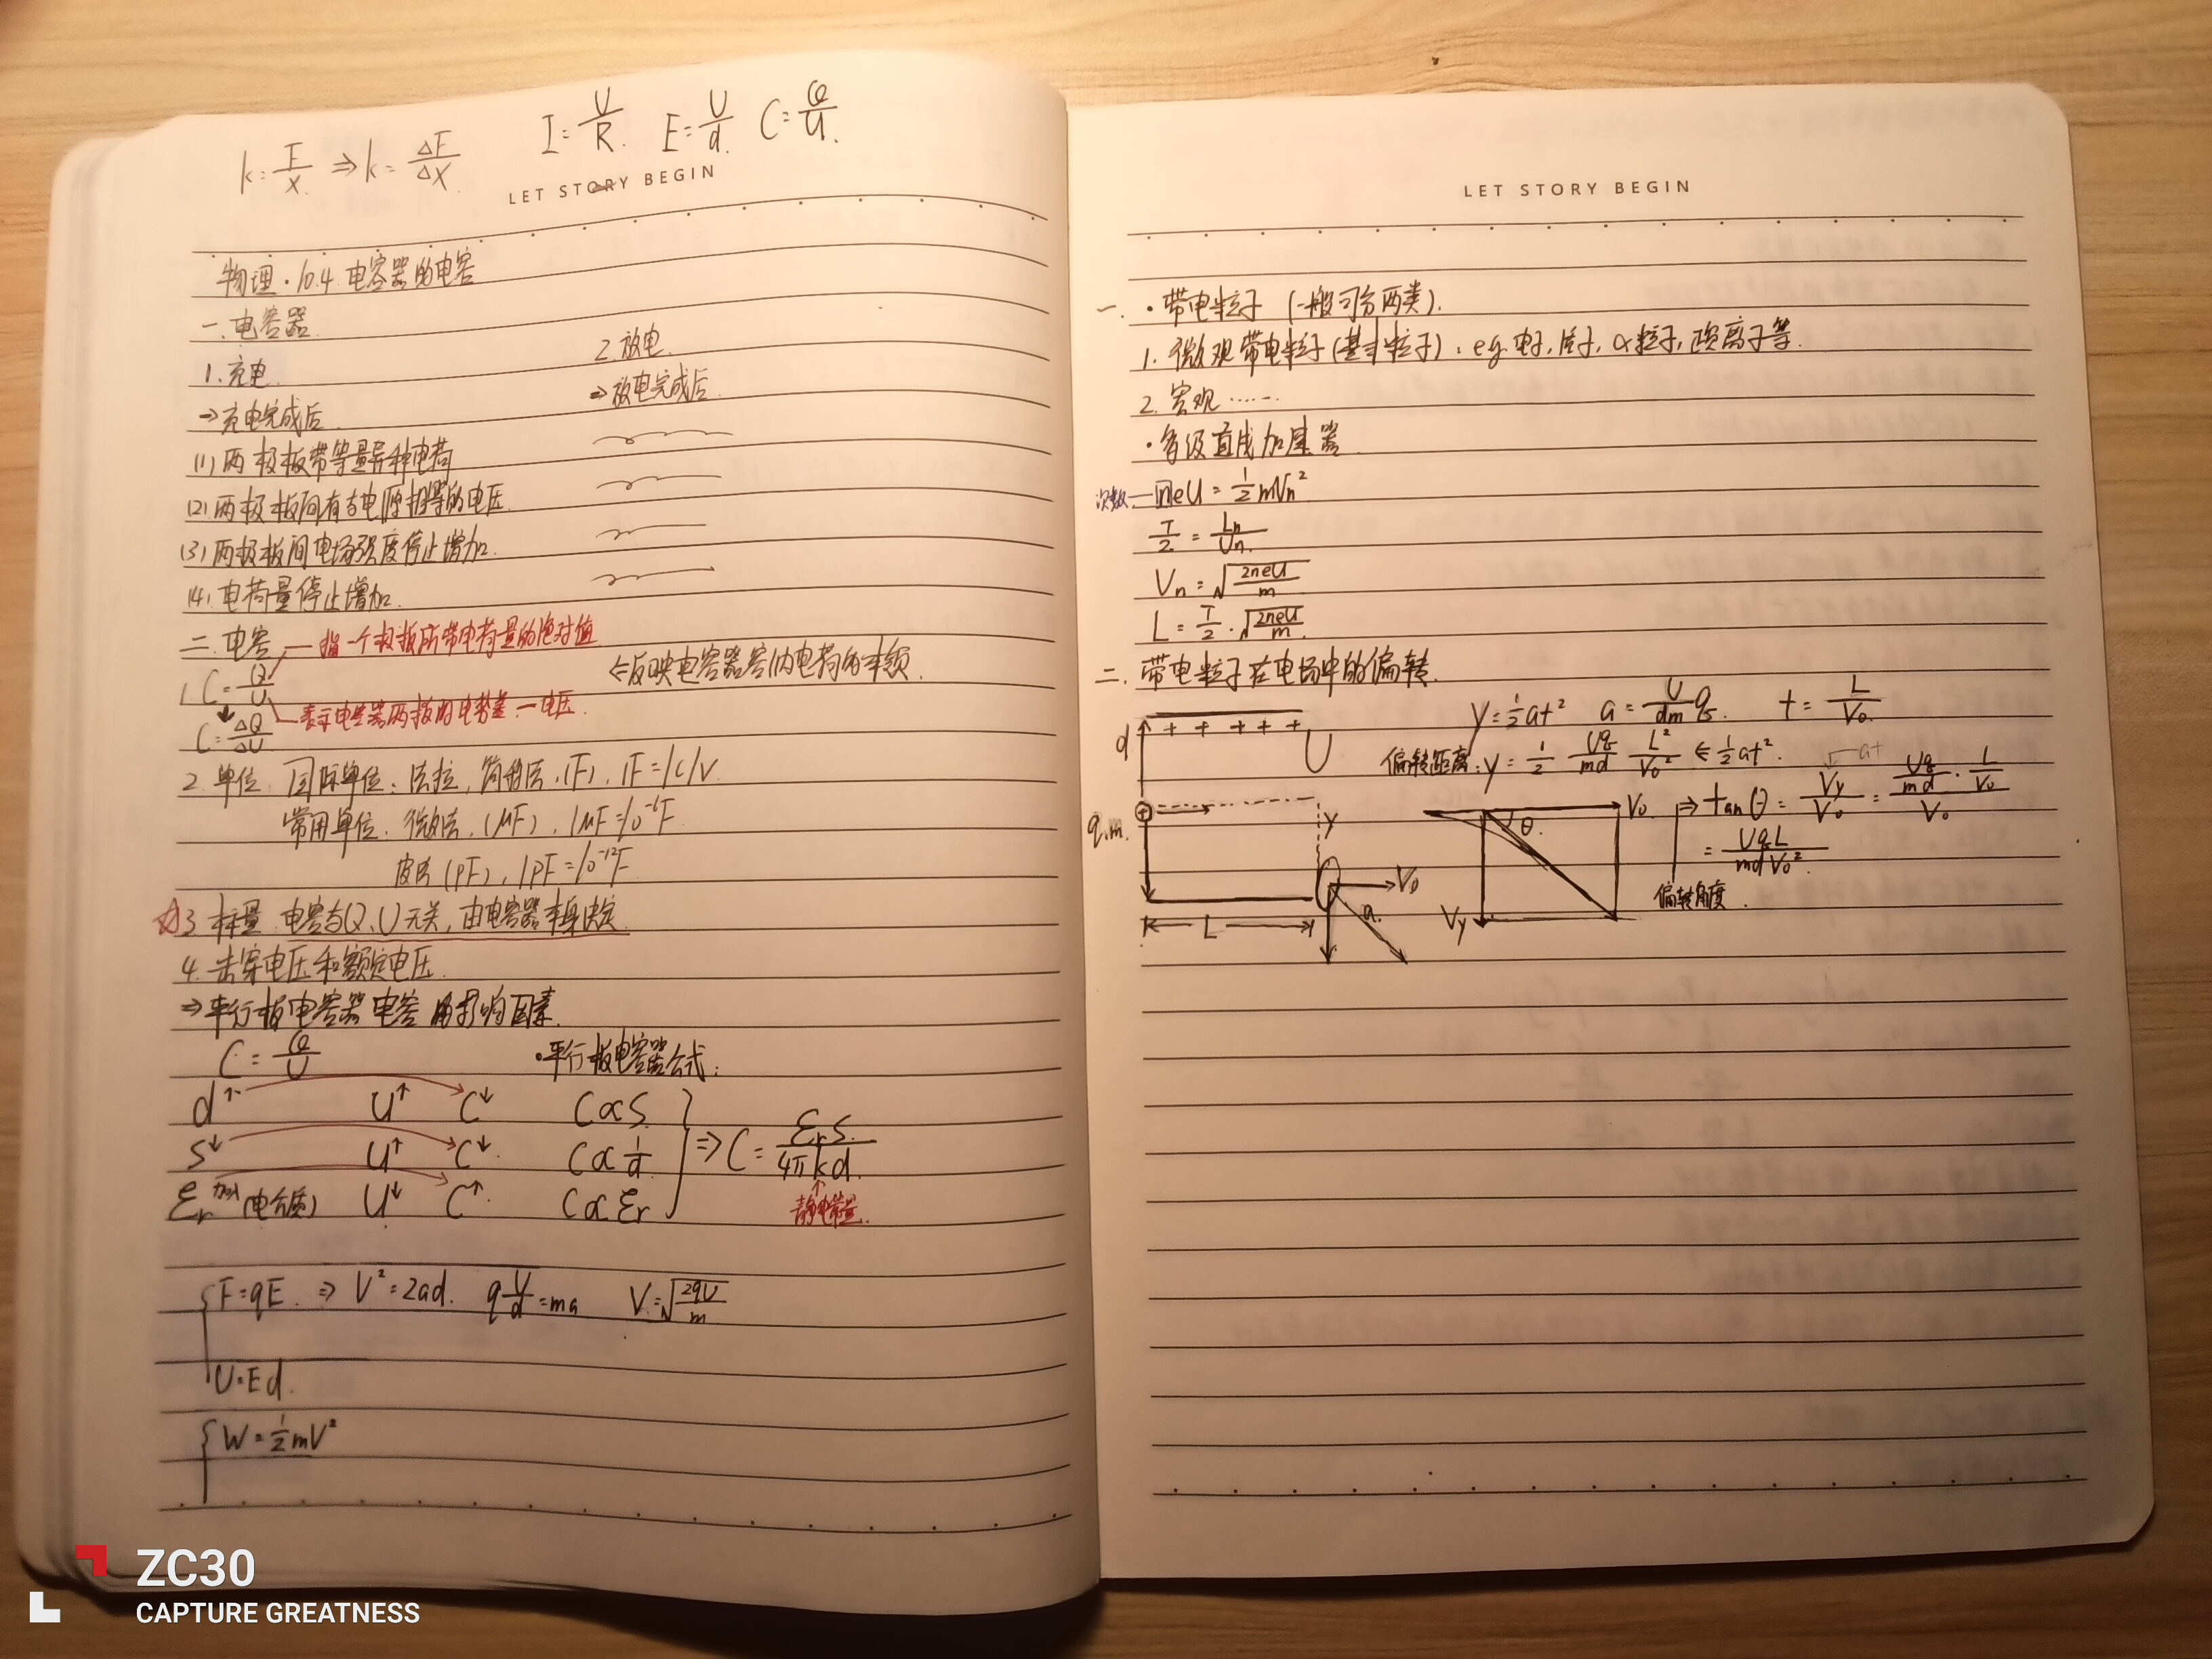 k=F/x ⇒ k=ΔF/Δx
I=U/R. E=U/d. C=Q/U.
LET STORY BEGIN
物理·10.4 电容器的电容
一.电容器.
1.充电. 2.放电.
⇒充电完成后 ⇒放电完成后
(1)两极板带等量异种电荷
(2)两极板间有与电源相等的电压
(3)两极板间电场强度停止增加.
(4).电荷量停止增加.
二.电容 —指一个极板所带电荷量的绝对值
1.C=Q/U ⇐反映电容器容纳电荷的本领.
—表示电容器两板的电势差—电压.
C=ΔQ/ΔU
2.单位:国际单位:法拉,简称法,(F),1F=1C/V.
常用单位:微法,(μF),1μF=10⁻⁶F.
皮法(pF),1pF=10⁻¹²F
☆3.标量.电容与Q、U无关,由电容器本身决定
4.击穿电压和额定电压.
⇒平行板电容器电容的影响因素.
C=Q/U ·平行板电容器公式:
d↑ U↑ C↓ C∝S
S↓ U↑ C↓ C∝1/d ⇒C=εrS/4πkd.
εr加入(电介质) U↓ C↑ C∝εr
静电常量.
F=qE. ⇒ V²=2ad. qU/d=ma V=√2qU/m
U=Ed.
W=½mV²
LET STORY BEGIN
一.·带电粒子(一般可分两类).
1.微观带电粒子(基本粒子):eg.电子,质子,α粒子,正负离子等.
2.宏观……
·多级直线加速器
次数—neU=½mVn²
T/2=Ln/Un.
Vn=√2neU/m
L=T/2·√2neU/m
二.带电粒子在电场中的偏转.
y=½at² a=U/dm q. t=L/V₀
偏转距离:y=½ Uq/md L²/V₀² ⇐½at².
d + + + + + U
q.m. y V₀ a. L
V₀ θ. Vy
at
⇒tanθ=Vy/V₀=(Uq/md·L/V₀)/V₀
=UqL/mdV₀².
偏转角度.
ZC30
CAPTURE GREATNESS